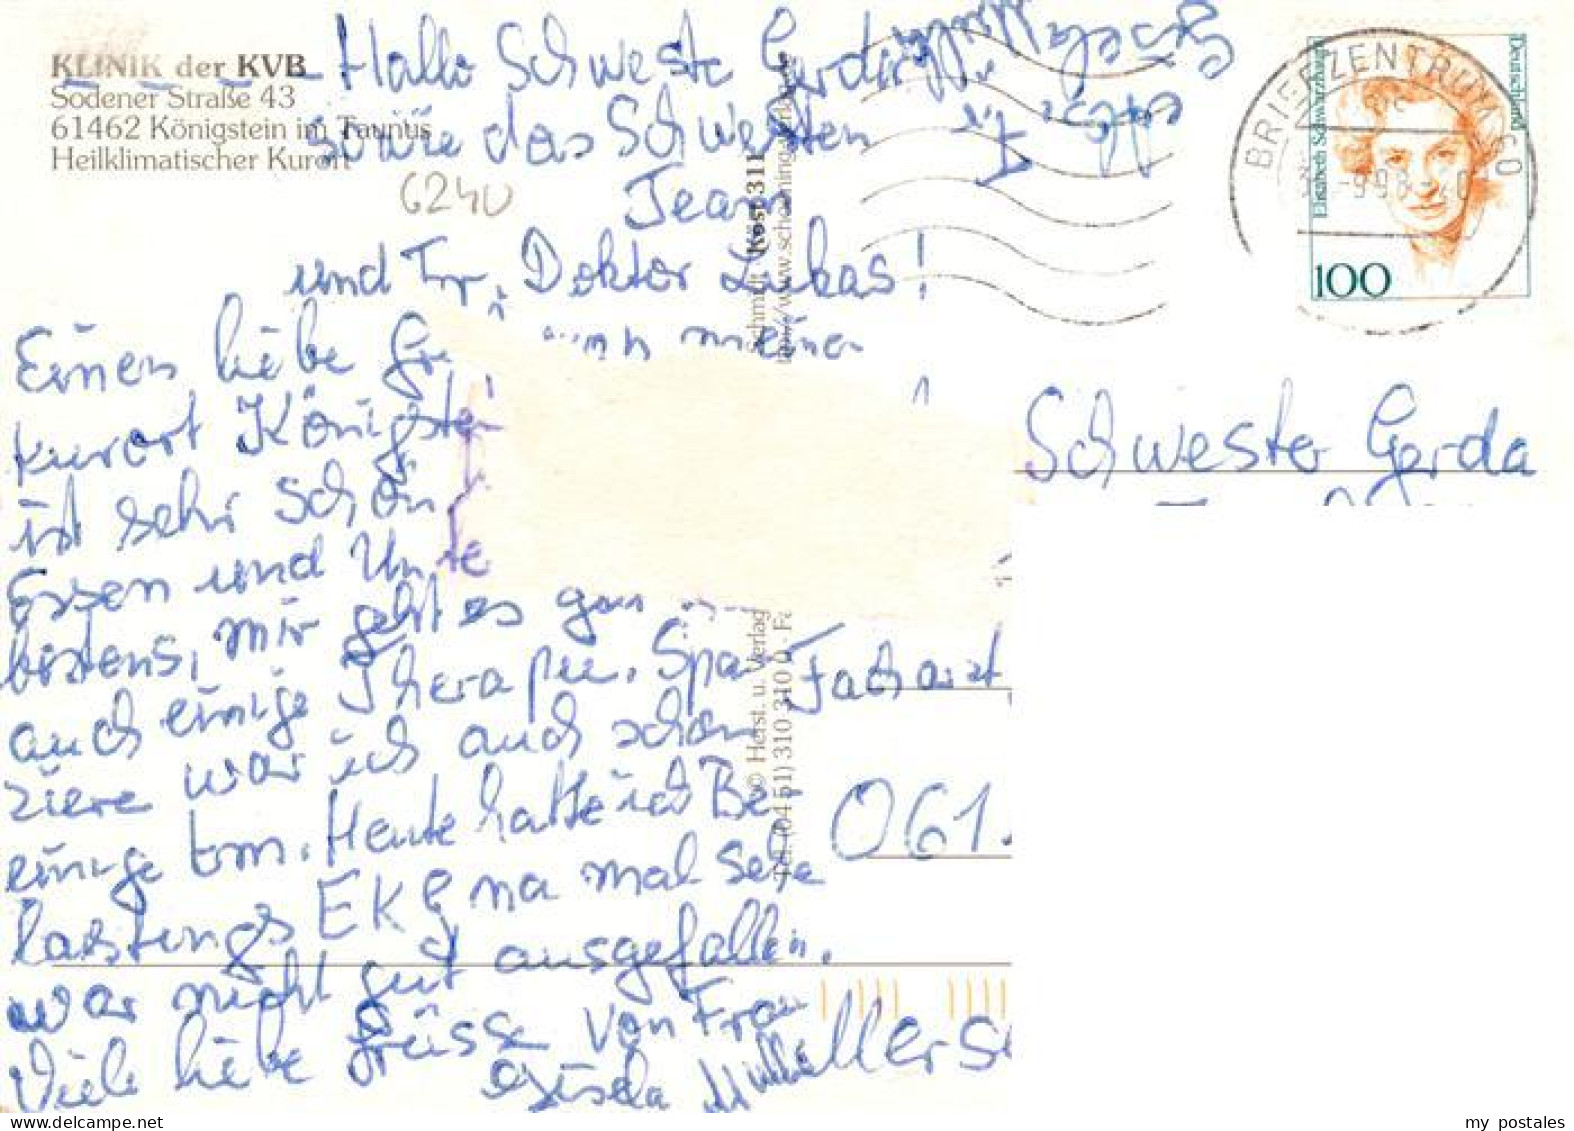 KLINIK der KVB
Sodener Straße 43
61462 Königstein im Taunus
Heilklimatischer Kurort
6240
Hallo Schweste Gerda
sowie das Schwesten
Team
und Doktor Lukas!
Einen liebe meinen
kurort Königstei
ist sehr schön
Essen und Unte
bestens, mir geht es
auch einige Therapie. Spa
ziere war ich auch schon
einige km. Heute hatte ich Be
lastungs EKG na mal sehe
war nicht gut ausgefallen.
Viele liebe Grüsse von Frau
Gisela
Schmidt Köst 311
© Herst. u. Verlag
Tel. (04 51) 310 310 0 - Fa
BRIEFZENTRUM 60
Deutschland
Elisabeth Schwarzhaupt
100
Schwester Gerda
Facharzt
061
my postales